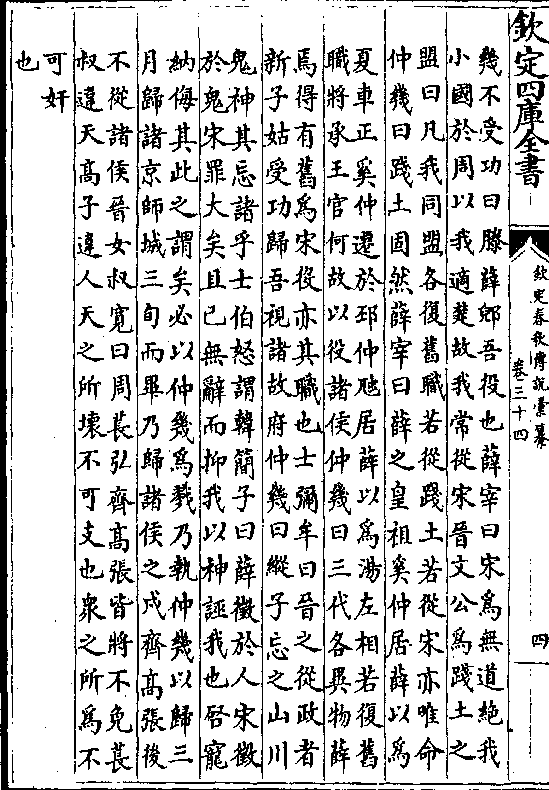 欽定四庫全書
欽定春秋傳說彙纂
卷三十四
四
幾不受功曰滕薛郳吾役也薛宰曰宋為無道絶我
小國於周以我適楚故我常從宋晉文公為踐土之
盟曰凡我同盟各復舊職若從踐土若從宋亦唯命
仲幾曰踐土固然薛宰曰薛之皇祖奚仲居薛以為
夏車正奚仲遷於邳仲虺居薛以為湯左相若復舊
職將承王官何故以役諸侯仲幾曰三代各異物薛
焉得有舊為宋役亦其職也士彌牟曰晉之從政者
新子姑受功歸吾視諸故府仲幾曰縱子忘之山川
鬼神其忘諸乎士伯怒謂韓簡子曰薛徵於人宋徵
於鬼宋罪大矣且已無辭而抑我以神誣我也啓寵
納侮其此之謂矣必以仲幾為戮乃執仲幾以歸三
月歸諸京師城三旬而畢乃歸諸侯之戍齊髙張後
不從諸侯晉女叔寛曰周萇弘齊髙張皆將不免萇
叔違天髙子違人天之所壞不可支也衆之所為不
可奸
也